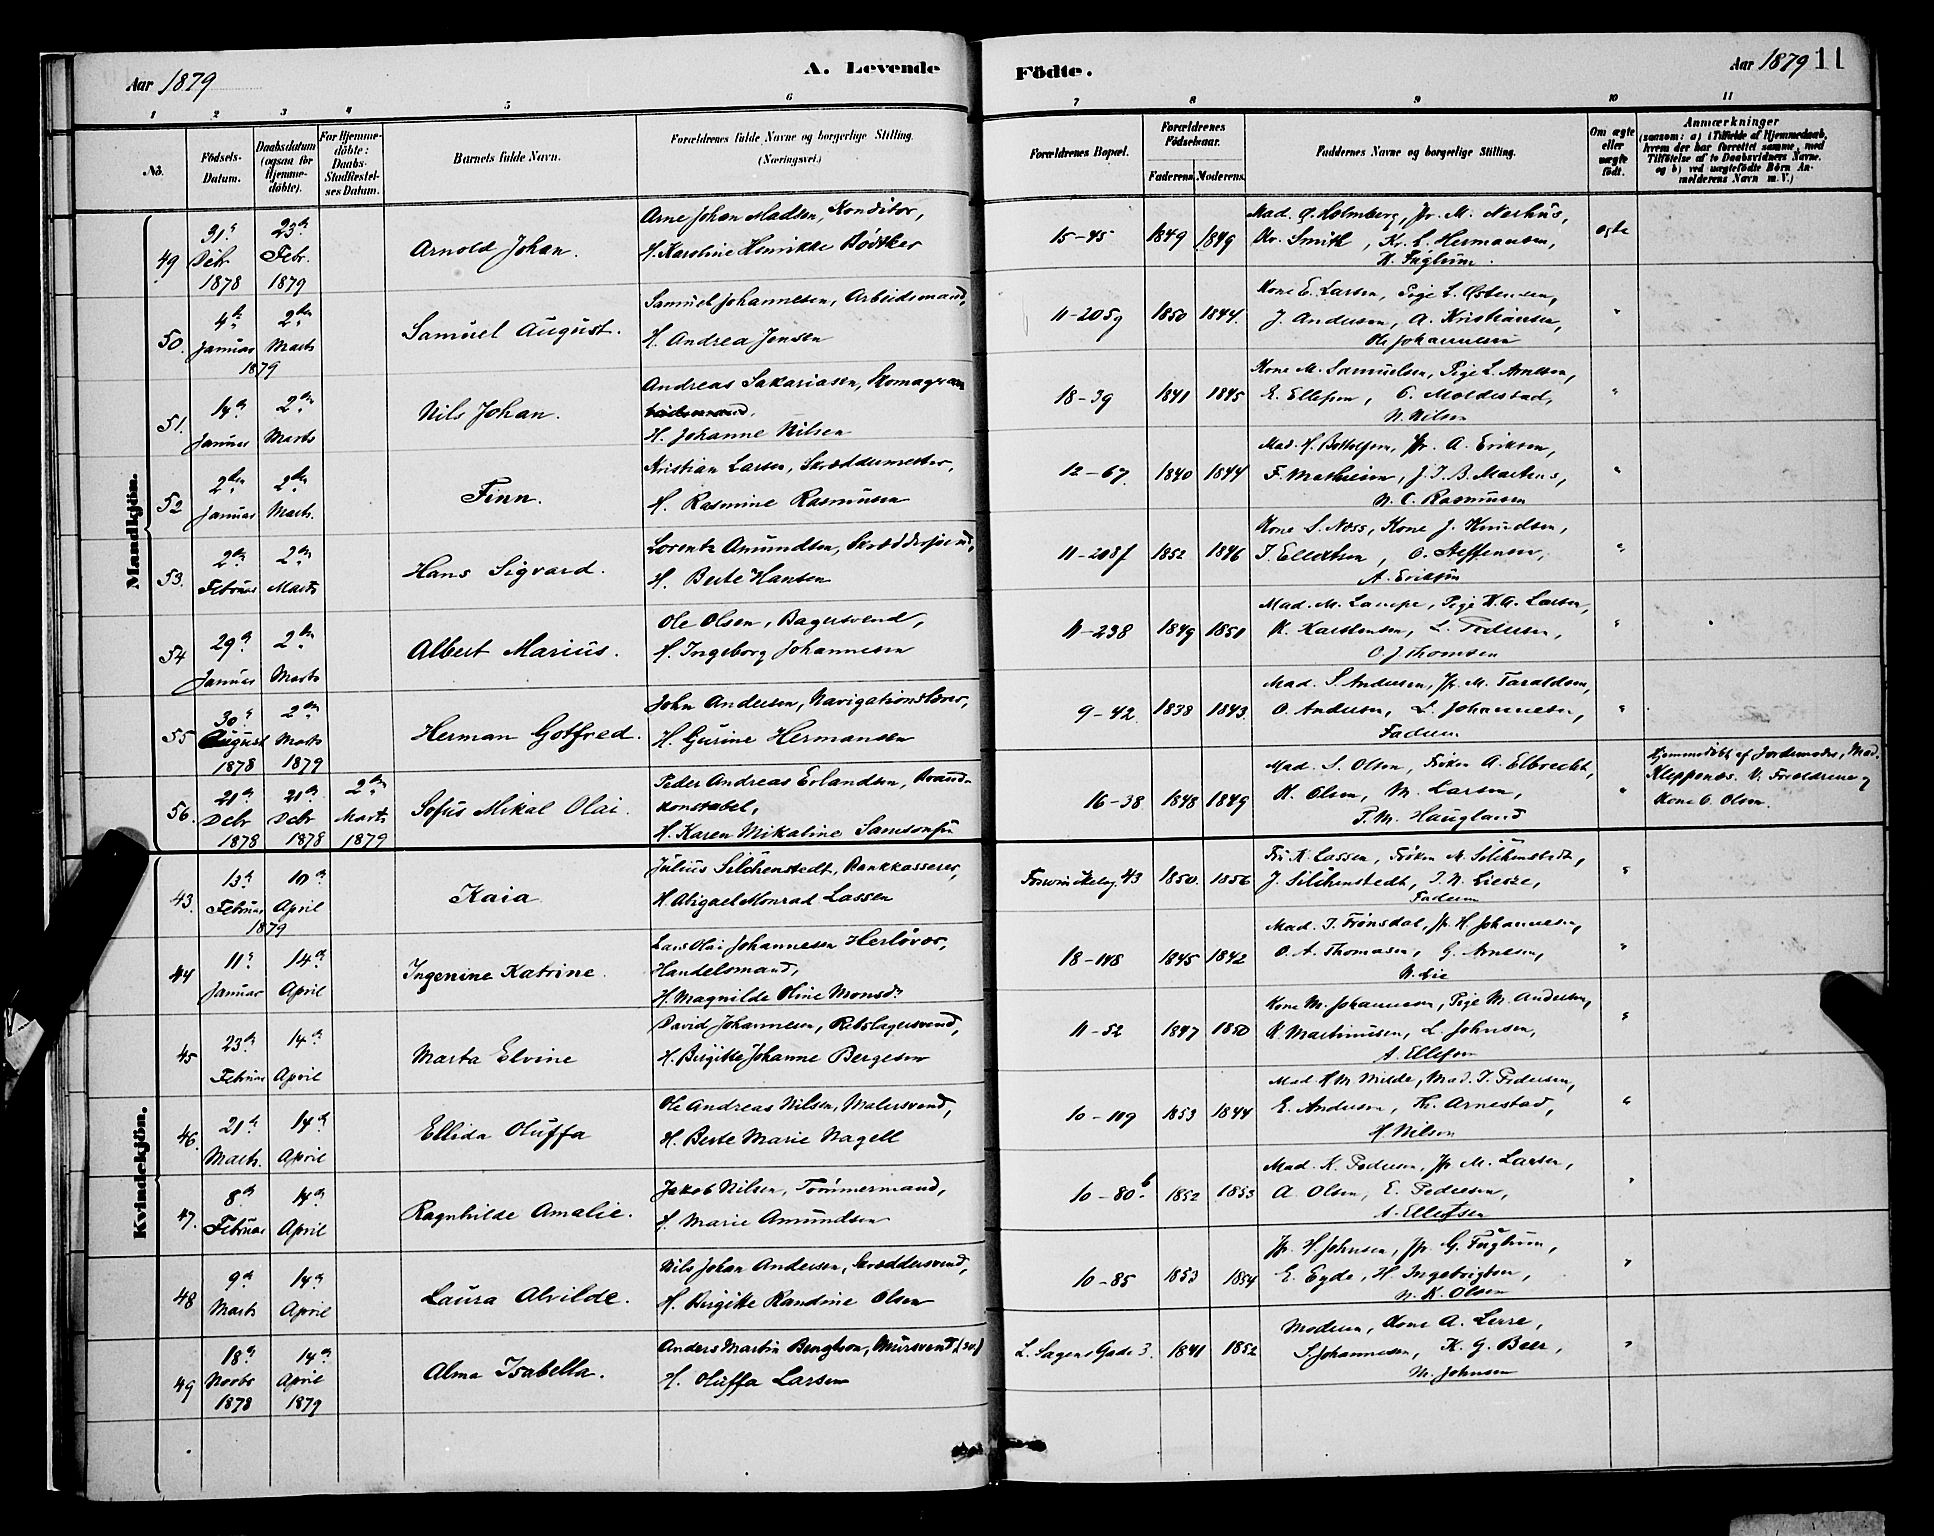 Aar 1879
A. Levende
Födte.
Aar 1879 11
1 2 3 4 5 6 7 8 9 10 11
No.
Födsels-Datum.
Daabsdatum (ogsaa for Hjemmedöbte).
For Hjemmedöbte: Daabs-Stadfæstelses Datum.
Barnets fulde Navn.
Forældrenes fulde Navne og borgerlige Stilling. (Næringsvei.)
Forældrenes Bopæl.
Forældrenes Födselsaar.
Faderens. Moderens.
Faddernes Navne og borgerlige Stilling.
Om ægte eller uægte födt.
Anmærkninger
(saasom: a) i Tilfælde af Hjemmedaab, hvem der har forrettet samme, med Tilföielse af to Daabsvidners Navne, og b) ved uægtefödte Börn Anmelderens Navn m. V.)
Mandkjön.
49 31te Debr 1878 23de Febr. 1879 Arnold Johan.
Arne Johan Madsen, Konditor,
H. Karoline Henrikke Bödtker
15-45 1849 1849
Mad. G. Holmberg, Jfr. M. Nerhus,
Kr. Smith, K. L. Hermansen,
K. Fuglum.
ægte
50. 4de Januar 1879 2den Marts Samuel August.
Samuel Johannesen, Arbeidsmand,
H. Andrea Jensen
11-205g 1850 1844.
Kone E. Larsen, Pige L. Østensen,
J. Andersen, A. Kristiansen,
Ole Johannesen
"
51. 14de Januar 2den Marts Nils Johan.
Andreas Sakariasen,
H. Johanne Nilsen
18-39 1841 1845
Kone M. Samuelsen, Pige L. Arnesen,
E. Ellefsen, O. Moldestad,
N. Nilsen
"
52 2den Januar 2den Marts. Finn.
Kristian Larsen, Skræddermester,
H. Rasmine Rasmusen
12-67. 1840 1844
Mad. H. Bottolfsen, Jfr. A. Eriksen,
F. Mathiesen, J. I. B. Martens,
N. C. Rasmusen
"
53. 2den Februar 2den Marts Hans Sigvard.
Lorentz Amundsen, Skræddersvend,
H. Berte Hansen
11-208f 1852 1846
Kone S. Næss, Kone J. Knudsen,
T. Ellertsen, O. Steffensen,
A. Eriksen
"
54 29de Januar 2den Marts Albert Marius.
Ole Olsen, Bagersvend,
H. Ingeborg Johannesen
11-238 1849 1851
Mad. M. Lampe, Pige K. A. Larsen,
K. Karstensen, L. Pedersen,
O. J. Thomsen
"
55 30te August 1878 2den Marts 1879 Herman Gotfred.
John Andersen, Navigationslærer,
H. Gurine Hermansen
9-42. 1838 1843.
Mad. S. Andersen, Jfr. M. Taraldsen,
O. Andersen, L. Johannesen,
Faderen
"
56. 21de Debr 1878 21de Debr 1878 2den Marts 1879 Sofus Mikal Olai.
Peder Andreas Erlandsen, Brandkonstabel,
H. Karen Mikaline Samsonsen
16-38 1848 1849
Mad. S. Olsen, Frøken A. Elbrecht,
K. Olsen, M. Larsen,
P. M. Haugland
"
Hjemmedöbt af Jordemoder, Mad.
Kleppenæs. V: Forældrene og
Kone O. Olsen.
Kvindekjön.
43. 13de Februar 1879 10de April Kaia
Julius Silchenstedt, Bankkasserer,
H. Abigael Monrad Lassen
43 1850. 1856
Fru K. Lassen, Frøken M. Silchenstedt,
J. Silchenstedt,
Faderen
"
44 11te Januar 14de April Ingenine Katrine.
Lars Olai Johannesen Herlöver,
Handelsmand,
H. Magnilde Oline Monsdr
18-148 1845 1842
Mad. I. Frönsdal, Jfr. H. Johannesen,
O. A. Thomasen, G. Arnesen,
N. Lie
"
45 23de Februar 14de April Marta Elvine
David Johannesen, Rebslagersvend,
H. Birgitte Johanne Bergesen
11-52 1847 1850
Kone M. Johannesen, Pige M. Andersen,
K. Martinusen, L. Johnsen,
A. Ellefsen
"
46. 21de Marts. 14de April Ellida Oluffa
Ole Andreas Nilsen, Malersvend,
H. Berte Marie Nagell
10-119 1853 1844
Mad. H. M. Milde, Mad. I. Pedersen,
E. Andersen, Kr. Arnestad,
H. Nilsen
"
47. 8de Februar 14de April Ragnhilde Amalie.
Jakob Nilsen, Tömmermand,
H. Marie Amundsen
10-80b 1852 1853
Mad. K. Pedersen, Jfr. M. Larsen,
A. Olsen, E. Pedersen,
A. Ellefsen
"
48 9de Marts 14de April Laura Alvilde.
Nils Johan Andersen, Skræddersvend,
H. Birgitte Randine Olsen
10-85 1853 1854
Jfr. H. Johnsen, Jfr. G. Fuglum,
E. Eyde, H. Ingebrigtsen,
N. K. Olsen
"
49 18de Novbr 1878 14de April 1879 Alma Isabella.
Anders Martin Bengtson, Mursvend, (sv.)
H. Oluffa Larsen
L. Sagens Gade 3. 1841 1852
Moderen, Kone A. Lerre,
S. Johannesen, K. G. Beer,
M. Johnsen
"